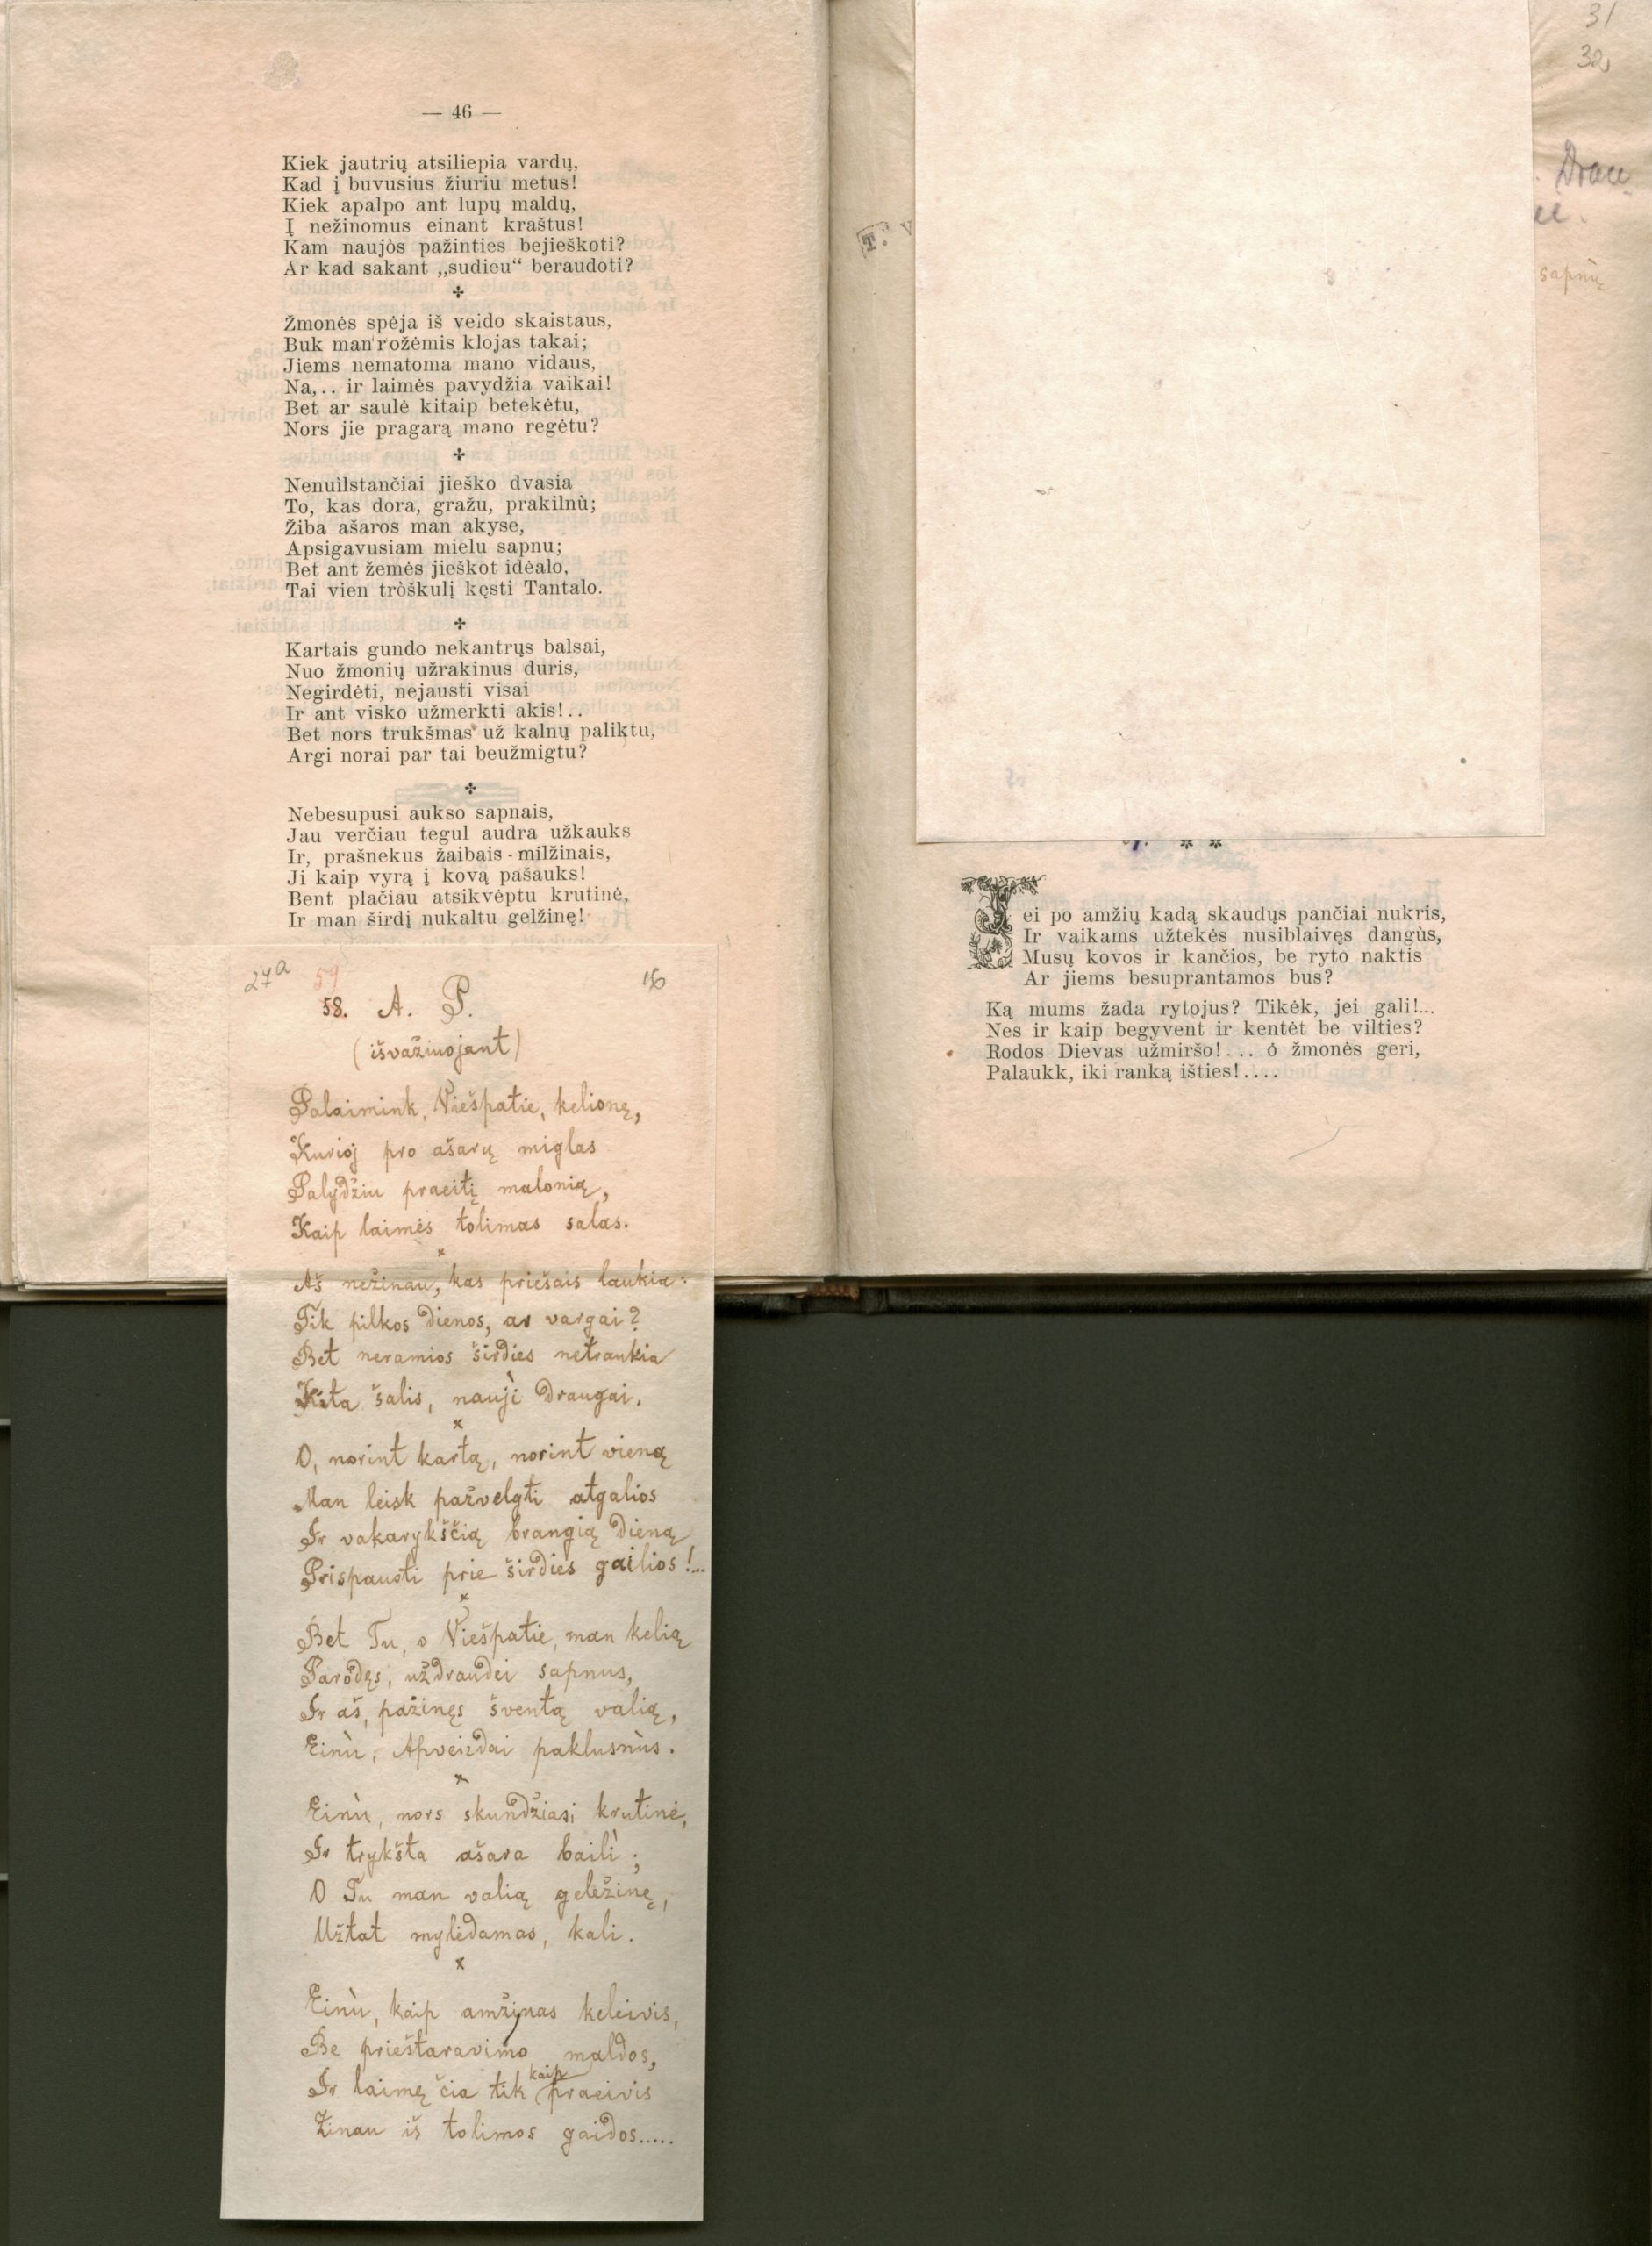 — 46 —
Kiek jautrių atsiliepia vardų,
Kad į buvusius žiuriu metus!
Kiek apalpo ant lupų maldų,
Į nežinomus einant kraštus!
Kam naujòs pažinties bejieškoti?
Ar kad sakant „sudieu“ beraudoti?
Žmonės spėja iš veido skaistaus,
Buk man rožėmis klojas takai;
Jiems nematoma mano vidaus,
Na,.. ir laimės pavydžia vaikai!
Bet ar saulė kitaip betekėtu,
Nors jie pragarą mano regėtu?
Nenuilstančiai jieško dvasia
To, kas dora, gražu, prakilnù;
Žiba ašaros man akyse,
Apsigavusiam mielu sapnu;
Bet ant žemės jieškot idėalo,
Tai vien tròškulį kęsti Tantalo.
Kartais gundo nekantrųs balsai,
Nuo žmonių užrakinus duris,
Negirdėti, nejausti visai
Ir ant visko užmerkti akis!..
Bet nors trukšmas už kalnų paliktu,
Argi norai par tai beužmigtu?
Nebesupusi aukso sapnais,
Jau verčiau tegul audra užkauks
Ir, prašnekus žaibais-milžinais,
Ji kaip vyrą į kovą pašauks!
Bent plačiau atsikvėptu krutinė,
Ir man širdį nukaltu gelžinę!
27a 59 16
58. A. P.
(išvažiuojant)
Palaimink, Viešpatie, kelionę,
Kurioj pro ašarų miglas
Palydžiu praeitį malonią,
Kaip laimės tolimas salas.
Aš nežinau, kas priešais laukia:
Tik pilkos dienos, ar vargai?
Bet neramios širdies netraukia
Kita šalis, naujì draugai.
O, norint kartą, norint vieną
Man leisk pažvelgti atgalios
Ir vakarykščią brangią dieną
Prispausti prie širdies gailios!...
Bet Tu, o Viešpatie, man kelią
Parodęs, uždraudei sapnus,
Ir aš, pažinęs šventą valią,
Einù, Apveizdai paklusnùs.
Einù, nors skundžiasi krutinė,
Ir trykšta ašara bailì;
O Tu man valią geležinę,
Užtat mylėdamas, kali.
Einù, kaip amžinas keleivis,
Be prieštaravimo maldos,
Ir laimę čia tik kaip praeivis
Žinau iš tolimos gaidos.....
31
32
Drau-
sapnų
T. V
Jei po amžių kadą skaudųs pančiai nukris,
Ir vaikams užtekės nusiblaivęs dangùs,
Musų kovos ir kančios, be ryto naktis
Ar jiems besuprantamos bus?
Ką mums žada rytojus? Tikėk, jei gali!...
Nes ir kaip begyvent ir kentėt be vilties?
Rodos Dievas užmiršo!... ó žmonės geri,
Palaukk, iki ranką išties!....